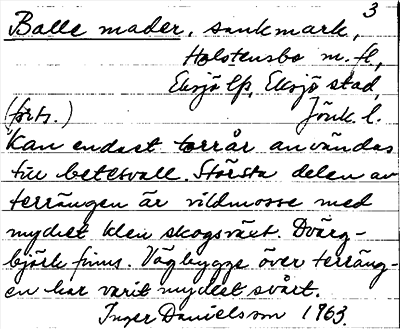 3
Balle mader, sankmark,
Holstensbo m. fl,
Eksjö lfs, Eksjö stad,
(forts.) Jönk. l.
Kan endast torrår användas
till betesvall. Största delen av
terrängen är vildmosse med
mycket klen skogsväxt. Dvärg-
björk finns. Vägbygge över terräng-
en har varit mycket svårt.
Inger Danielsson 1963